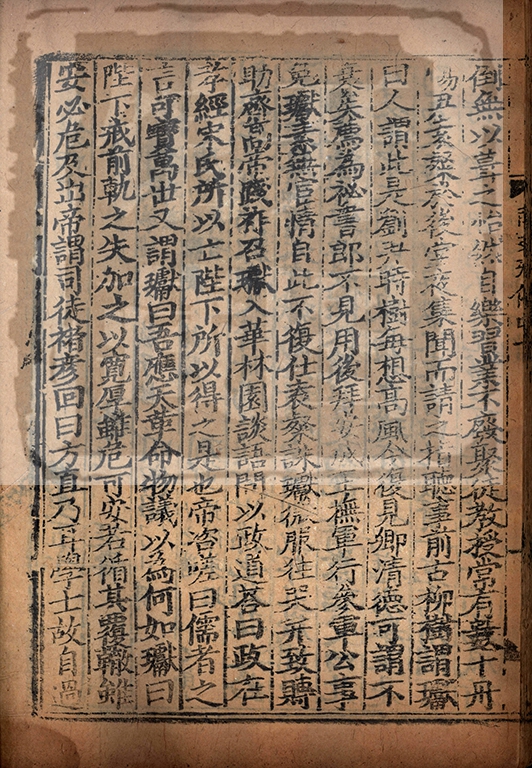 倒無以葺之怡然自樂習業不廢聚徒教授常有數十丹
袁粲於後堂夜集聞而請之指聽事前古柳樹謂瓛
曰人謂此是劉尹時樹每想高風今復見卿清德可謂不
衰矣薦為祕書郎不見用後拜安成王撫軍行參軍公事
免瓛素無宦情自此不復仕袁粲誅瓛微服往哭并致賻
助齊高帝踐祚召瓛入華林園談語問以政道荅曰政在
孝經宋氏所以亡陛下所以得之是也帝咨嗟曰儒者之
言可寶萬世又謂瓛曰吾應天革命物議以為何如瓛曰
陛下戒前軌之失加之以寬厚雖危可安若循其覆轍雖
安必危及出帝謂司徒褚彥回曰方直乃耳學士故自過